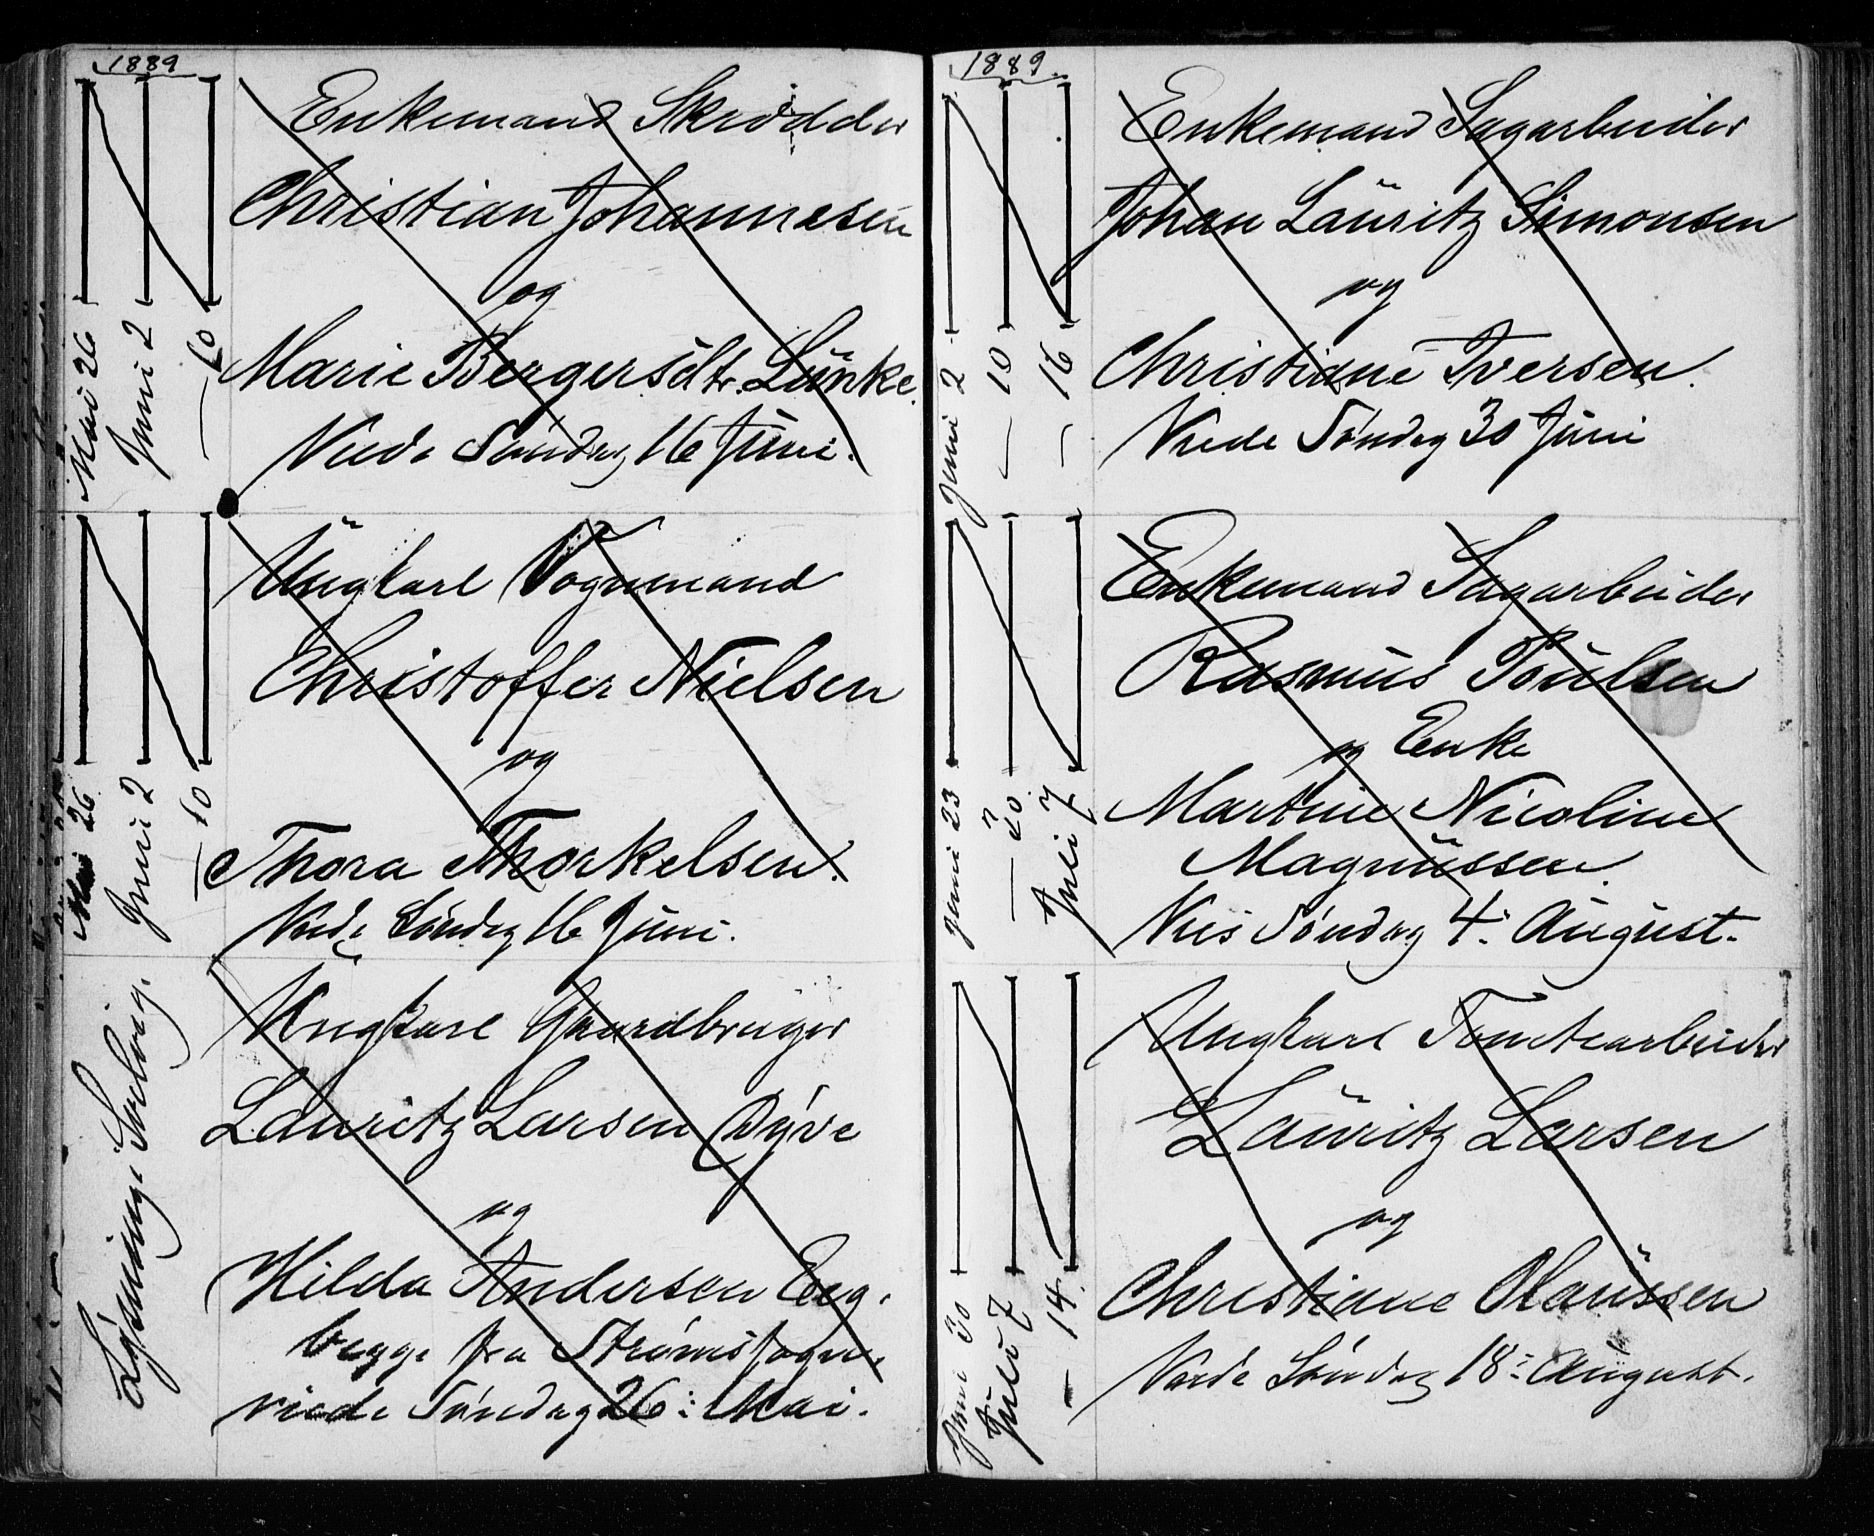 1889
Enkemand Skrædder
Christian Johannesen
og
Marie Bergersdtr. Lünke.
Viede Søndag 16 Juni.
Mai 26
Juni 2
— 10
Ungkarl Vognmand
Christoffer Nielsen
og
Thora Thorkelsen.
Viede Søndag 16 Juni.
Mai 26
Juni 2
— 10
Ungkarl Gaardbruger
Lauritz Larsen Dyve
og
Hilda Andersen Eeg.
begge fra Strømsfogn.
viede Søndag 26: Mai.
Lysning i Solvig.
1889.
Enkemand Sagarbeider
Johan Lauritz Simonsen
og
Christiane Iversen.
Viede Søndag 30 Juni
Juni 2
— 10
— 16
Enkemand Sagarbeider
Rasmus Poulsen
og Enke
Martine Nicoline
Magnussen.
Vies Søndag 4: August.
Juni 23
— 30
Juli 7
Ungkarl Tomtearbeider
Lauritz Larsen
og
Christiane Olaussen
Viede Søndag 18: August.
Juni 30
Juli 7
— 14.